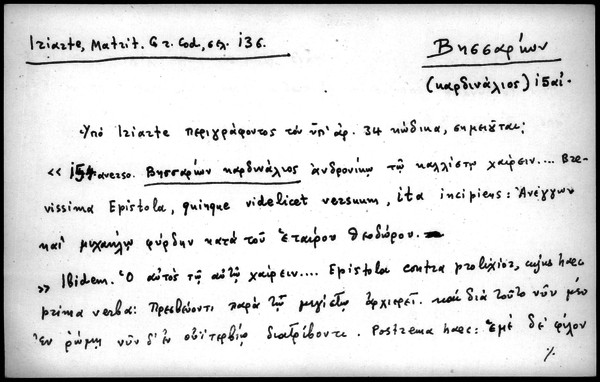 Iriarte, Matrit. Gr. Cod., σελ. 136.
Βησσαρίων
(καρδινάλιος) 15 αἰ.
Ὑπὸ Iriarte περιγράφοντος τὸν ὑπ' ἀρ. 34 κώδικα, σημειοῦται:
« 154 averso. Βησσαρίων καρδινάλιος ἀνδρονίκῳ τῷ καλλίστῳ χαίρειν.... Bre-
vissima Epistola, quinque videlicet versuum, ita incipiens: Ἀνέγνων
καὶ μιχαήλῳ φύρδην κατὰ τοῦ ἑταίρου θεοδώρου.
» Ibidem. Ὁ αὐτὸς τῷ αὐτῷ χαίρειν.... Epistola contra prolixior, cujus haec
prima verba: Πρεσβεύοντι παρὰ τῷ μεγίστῳ ἀρχιερεῖ. καὶ διὰ τοῦτο νῦν μὲν
ἐν ῥώμῃ νῦν δ' ἐν οὐϊτερβίῳ διατρίβοντι. Postrema haec: Ἐμὲ δὲ φίλον
./.